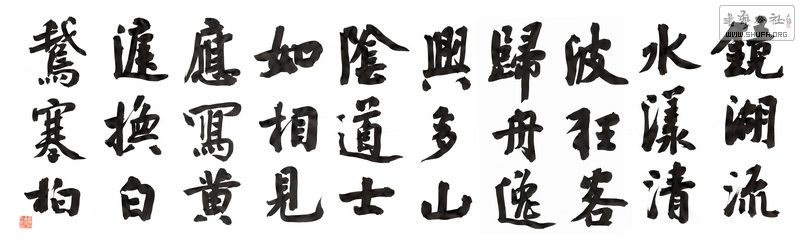 鏡湖流
水漾清
波狂客
歸舟逸
興多山
陰道士
如相見
應寫黃
庭換白
鵞寒柏
WWW.SHUFA.ORG